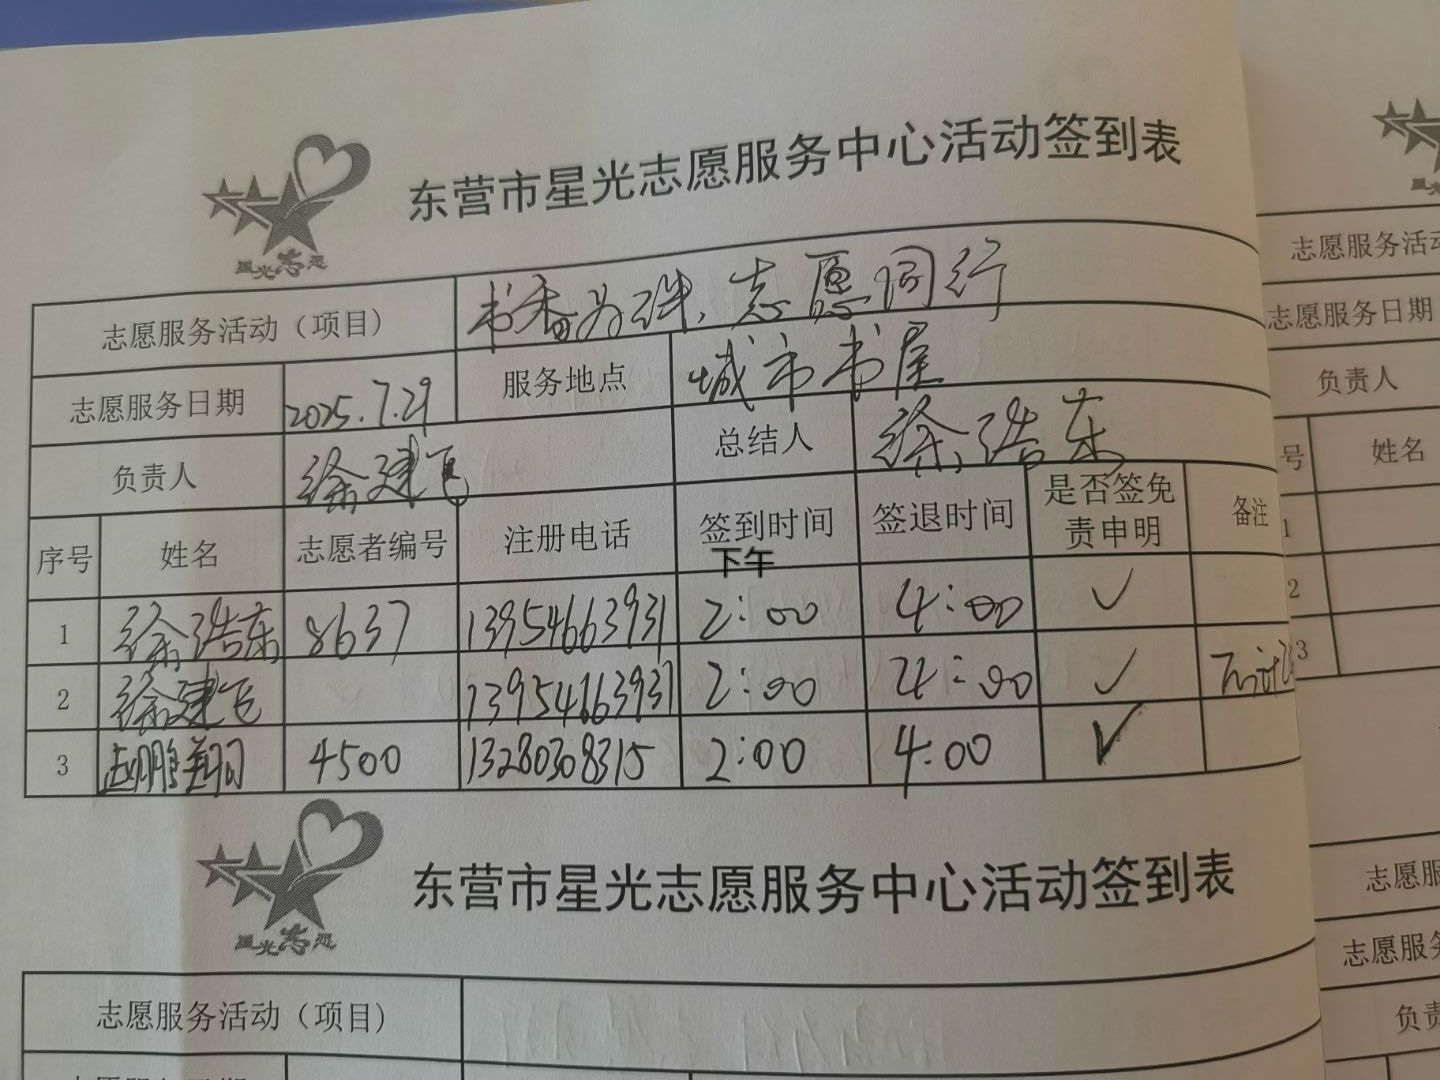 东营市星光志愿服务中心活动签到表
星光志愿
志愿服务活动（项目） 书香为伴，志愿同行
志愿服务日期 2025.7.29 服务地点 城市书屋
负责人 徐建飞 总结人 徐浩东
序号 姓名 志愿者编号 注册电话 签到时间 签退时间 是否签免责申明 备注
下午
1 徐浩东 8637 13954663931 2:00 4:00 ✓
2 徐建飞 13954663931 2:00 4:00 ✓ 不计
3 赵鹏翔 4500 13280308315 2:00 4:00 ✓
东营市星光志愿服务中心活动签到表
星光志愿
志愿服务活动（项目）
志愿服务活动
志愿服务日期
负责人
号 姓名
1
2
3
志愿服
志愿服务
负责